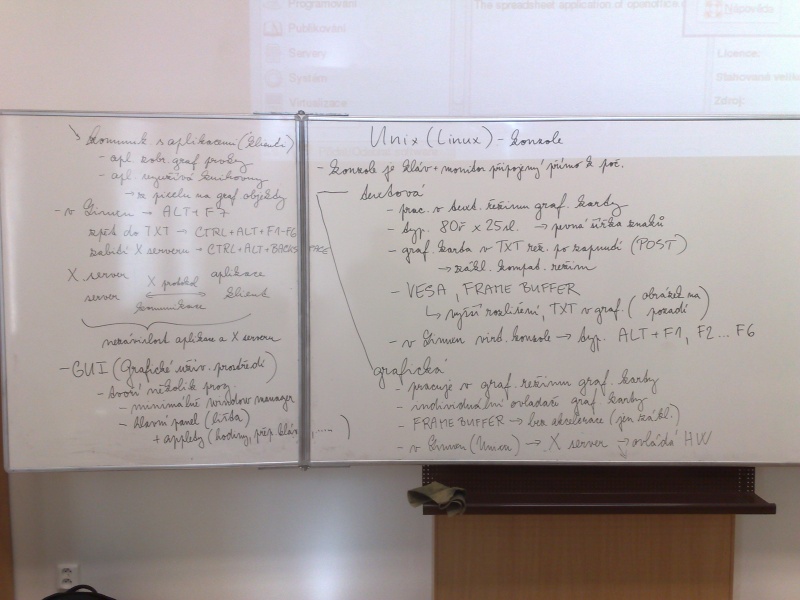 Programování
Publikování
Servery
Systém
Virtualizace
The spreadsheet application of openoffice.
Nápověda
Licence:
Zdroj:
Unix (Linux) - konzole
- konzole je kláv + monitor připojený přímo k poč.
textová
- prac. v text. režimu graf. karty
- typ. 80ř x 25sl. → pevná šířka znaků
- graf. karta v TXT rež. po zapnutí (POST)
→ zákl. kompat. režim
- VESA, FRAME BUFFER
↳ vyšší rozlišení, TXT v graf. (obrázek na pozadí)
- v Linux virt. konzole → typ. ALT + F1, F2 ... F6
grafická
- pracuje v graf. režimu graf. karty
- individuální ovladače graf. karty
- FRAME BUFFER → bez akcelerace (jen zákl.)
- v Linuxu (Unixu) → X server → ovládá HW
↘ komunik. s aplikacemi (klienti)
- apl. zobr. graf prvky
- apl. využívá knihovny
→ z pixelu na graf objekty
- v Linuxu → ALT + F7
zpět do TXT → CTRL + ALT + F1-F6
zabití X serveru → CTRL + ALT + BACKSPACE
X server X protokol aplikace
server ⟷ klient
komunikace
nezávislost aplikace a X serveru
- GUI (Grafické uživ. prostředí)
- tvoří několik prog.
- minimálně window manager
- hlavní panel (lišta)
+ applety (hodiny, přep. kláv, ....)